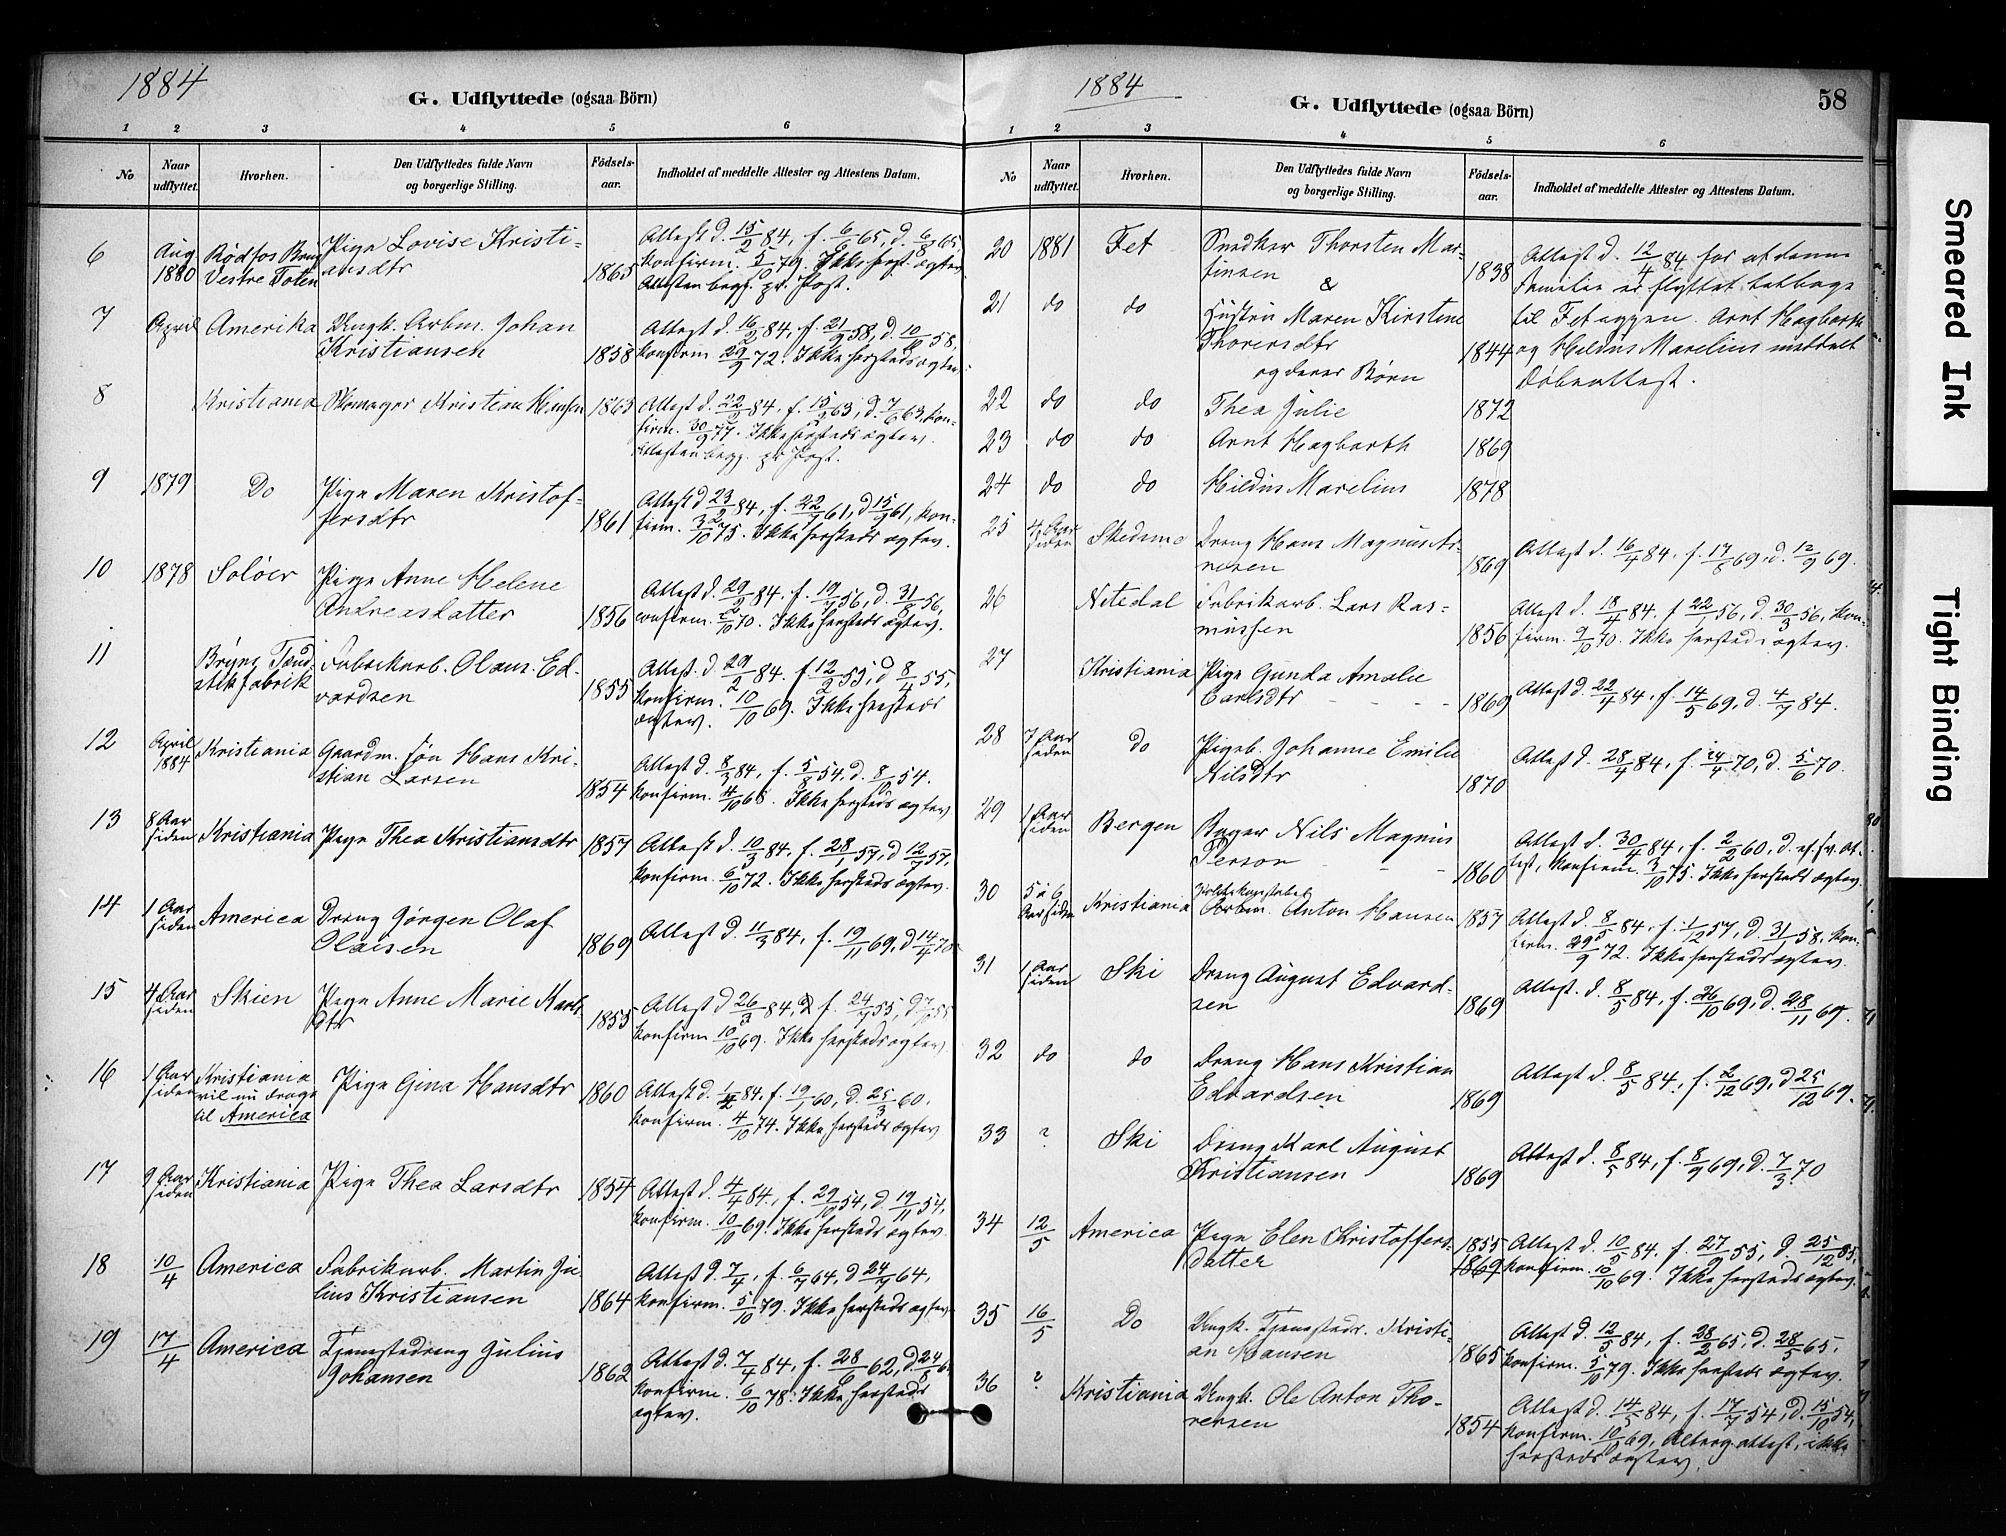 1884
G. Udflyttede (ogsaa Börn)
1 2 3 4 5 6
No
Naar udflyttet.
Hvorhen.
Den Udflyttedes fulde Navn og borgerlige Stilling.
Födsels-aar.
Indholdet af meddelte Attester og Attestens Datum.
6 Aug 1880 Vestre Toten Pige Lovise Kristi-
ansdtr 1865 Attest d. 15/2 84, f. 6/6 65, d. 6/8 65
Konfirm. 5/10 79. Ikke herst. ægtev.
Attesten begj. pr. Post.
7 April Amerika Ungk. Arbm. Johan
Kristiansen 1858 Attest d. 16/2 84, f. 21/9 58, d. 10/ 58,
Konfirm. 29/9 72. Ikke hersteds ægtev.
8 Kristiania Skomager Kristian Hansen 1863 Attest d. 22/2 84, f. 15/ 63, d. 7/6 63, Kon-
firm. 30/9 77. Ikke hersteds ægtev.
Attesten begj. pr. Post.
9 1879 Do Pige Maren Kristof-
fersdtr 1861 Attest d. 23/2 84, f. 22/7 61, d. 15/9 61, Kon-
firm. 3/10 75. Ikke hersteds ægtev.
10 1878 Soløer Pige Anne Helene
Andreasdatter 1856 Attest d. 29/2 84. f. 19/7 56, d. 31/8 56,
confirm. 2/10 70. Ikke hersteds ægtev.
11 Bryns Tænd-
stikfabrik Fabrikarb. Olaus Ed-
vardsen 1855 Attest d. 29/2 84. f. 12/2 55, d. 8/4 55,
Konfirm. 10/10 69. Ikke hersteds
ægtev.
12 April 1884 Kristiania Gaardm. Søn Hans Kri-
stian Larsen 1854 Attest d. 8/3 84, f. 5/8 54. d. 8/10 54.
Konfirm. 4/10 68. Ikke hersteds ægtev
13 8 Aar siden Kristiania Pige Thea Kristiansdtr 1857 Attest d. 10/3 84, f. 28/1 57, d. 12/7 57,
Konfirm. 6/10 72. Ikke hersteds ægtev.
14 1 Aar siden America Dreng Jørgen Olaf
Olaisen 1869 Attest d. 11/3 84, f. 19/11 69, d. 14/4 70
15 4 Aar siden Skien Pige Anne Marie Karls-
dtr 1855 Attest d. 26/3 84, f. 24/7 55, d. 55
Konfirm. 10/10 69. Ikke hersteds ægtev
16 1 Aar siden Kristiania
vil nu drage
til America Pige Gina Hansdtr 1860 Attest d. 1/4 84, f. 19/1 60, d. 25/3 60.
Konfirm. 4/10 74. Ikke hersteds ægtev
17 9 Aar siden Kristiania Pige Thea Larsdtr 1854 Attest d. 4/4 84, f. 29/10 54, d. 19/11 54,
Konfirm. 10/10 69. Ikke hersteds ægtev
18 10/4 America Fabrikarb. Martin Ju-
lius Kristiansen 1864 Attest d. 7/4, f. 6/7 64, d. 24/7 64,
Konfirm. 5/10 79. Ikke hersteds ægtev
19 17/4 America Tjenestedreng Julius
Johansen 1862 Attest d. 7/4 84, f. 28/6 62, d. 24/8 62
Konfirm. 6/10 78. Ikke hersteds
ægtev.
1884
G. Udflyttede (ogsaa Börn) 58
1 2 3 4 5 6
No
Naar udflyttet.
Hvorhen.
Den Udflyttedes fulde Navn og borgerlige Stilling.
Födsels-aar.
Indholdet af meddelte Attester og Attestens Datum.
20 1881 Fet Snedker Thorsten Mar-
tinsen 1838 Attest d. 12/4 84 for at denne
&
Familie er flyttet tilbage
21 do do Hustru Maren Kirstine
Thorersdtr 1844 til Fet igjen. Arnt Hagbarth
og Hildus Marelius meddelt
og deres Børn Døbeattest.
22 do do Thea Julie 1872
23 do do Arnt Hagbarth 1869
24 do do Hildus Marelius 1878
25 4 Aar siden Skedsmo Dreng Hans Magnus An-
resen 1869 Attest d. 16/4 84, f. 17/8 69, d. 12/9 69.
26 Nitedal Fabrikarb. Lars Ras-
mussen 1856 Attest d. 18/4 84. f 22/1 56, d. 30/3 56, Kon-
firm. 9/10 70. Ikke hersteds ægtev.
27 Kristiania Pige Gunda Amalie
Carlsdtr 1869 Attest d. 22/4 84, f. 14/5 69, d. 4/7 84.
28 7 Aar siden do Pigeb. Johanne Emilie
Nilsdtr 1870 Attest d. 28/4 84, f. 24/4 70, d. 5/6 70.
29 1 Aar siden Bergen Bager Nils Magnus
Person 1860 Attest d. 30/4 84, f. 2/2 60, d. ef. sv. At-
test, Konfirm. 3/10 75. Ikke hersteds ægtev.
30 5 à 6 Aar siden Kristiania Arbm. Anton Hansen 1857 Attest d. 8/5 84, f. 1/12 57, d. 31/1 58, Kon-
firm. 29/9 72. Ikke hersteds ægtev.
31 1 Aar siden Ski Dreng August Edvard-
sen 1869 Attest. d. 8/5 84, f. 26/10 69, d. 28/11 69.
32 do do Dreng Hans Kristian
Edvardsen 1869 Attest d. 8/5 84, f. 2/12 69, d 25/12 69.
33 ? Ski Dreng Karl August
Kristiansen 1869 Attest d. 8/5 84, f. 8/9 69, d. 7/3 70
34 12/5 America Pige Elen Kristoffers-
datter 1855 1869 Attest d. 10/5 84. f. 27/9 55, d. 25/12 85,
Konfirm. 10/10 69. Ikke hersteds ægtev.
35 16/5 Do Ungk. Tjenestedr. Kristi-
an Hansen 1865 Attest d. 12/5 84, f. 28/2 65, d. 28/5 65,
Konfirm. 5/10 79. Ikke hersteds ægtev.
36 ? Kristiania Ungk. Ole Anton Tho-
resen 1854 Attest d. 14/5 84, f. 17/7 54, d. 15/10 54,
Konfirm. 10/10 69, attest, ikke
hersteds ægtev.
Smeared Ink
Tight Binding